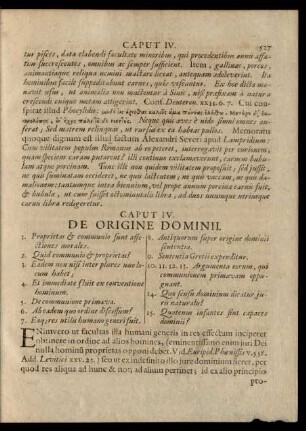 CAPUT IV. 527
tur pisces, data elabendi facultate minoribus, qui præcedentibus anni affa-
tim succrescentes, omnibus ac semper sufficient. Item, gallinas, porcos,
animantiaque reliqua nemini mactare liceat, antequam adoleverint. Ita
hominibus facile suppeditabunt carnes, quæ vescuntur. Ex hoc dicta ma-
navit usu, ut animalia non mallentur à Sinis, nisi præfixum à natura
crescendi cuique metam attigerint. Conf. Deuteron. xxii. 6. 7. Cui con-
spirat istud Phocylidis:
Neque quis aves è nido simul omnes au-
ferat, Sed matrem relinquat, ut rursus ex ea habeas pullos. Memoratu
quoque dignum est illud factum Alexandri Severi apud Lampridium:
Cum vilitatem populus Romanus ab eo peteret, interrogavit per curionem,
quam speciem caram putarent? illi continuo exclamaverunt, carnem bubu-
lam atque porcinam. Tunc non quidem vilitatem proposuit, sed jussit,
ne quis suminatam occideret, ne quis lactentem, ne quis vaccam, ne quis da-
malionem: tantumque intra biennium, vel prope annum porcinæ carnis fuit,
& bubulæ, ut cum fuisset octominutalis libra, ad duas unumque utriusque
carnis libra redigeretur.
CAPUT IV.
DE ORIGINE DOMINII.
1. Proprietas & communio sunt affe-
ctiones morales.
2. Quid communio & proprietas?
3. Eadem non nisi inter plures ho-
cum habet,
4. Et immediate fluit ex conventione
hominum.
5. De communione primæva.
6. Ab eadem quo ordine discessum?
7. Eoq; res utilis humano generi fuit.
8. Antiquorum super origine dominii
sententia.
9. Sententia Grotii expenditur.
10. 11. 12. 13. Argumenta eorum, qui
communionem primævam oppu-
gnant.
14. Quo sensu dominium dicatur ju-
ris naturalis?
15. Quatenus infantes sint capaces
dominii?
ENimvero ut facultas illa humani generis in res effectum inciperet
obtinere in ordine ad alios homines, (eminentissimo enim juri Dei
nulla hominū proprietas opponi debet. Vid. Euripid. Phœnissis v. 558.
Add. Levitici xxv. 23.) seu ut ex indefinito illo jure dominium fieret, per
quod res aliqua ad hunc & non ad alium pertineret: id ex alio principio
pro-